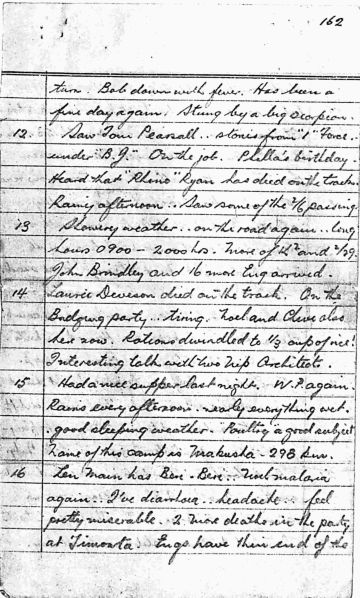 162
turn. Bob down with fever. Has been a
fine day again. Stung by a big scorpion.
12 Saw Tom Pearsall.. stories from "1" Force.
under "B.J." On the job. Phella's birthday.
Heard that "Rhino" Ryan has died on the track.
Rainy afternoon.. Saw some of the 2/6 passing.
13 Showery weather.. on the road again.. long
hours 0900 - 2000 hrs. More of and 2/29.
John Brindley and 16 more Eng arrived.
14 Laurie Deveson died on the track. On the
Bridging party.. tiring. Noel and Clive also
here now. Rations dwindled to 1/3 cup of rice!
Interesting talk with two Nip Architects.
15 Had a nice supper last night. W.P. again.
Rains every afternoon.. nearly everything wet.
.. good sleeping weather. a good subject
name of this camp is - 298 km.
16 Len Main has Beri-Beri.. malaria
again.. I've diarrhoea.. headache.. feel
pretty miserable. 2 more deaths in the party
at Timonta. Engs have their end of the